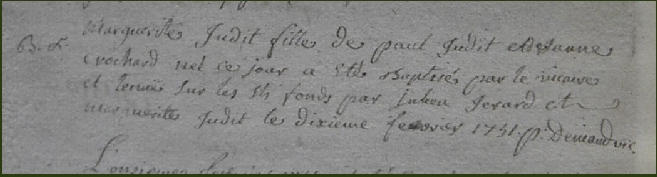 B. f. Marguerite Judit fille de paul Judit et de Janne
Crochard née ce jour a été Baptisée par le vicaire
et tenuë sur les Sts fonds par Julien Jerard et
Marguerite Judit le dixieme fevrier 1731. p. vic.
L'onsieme